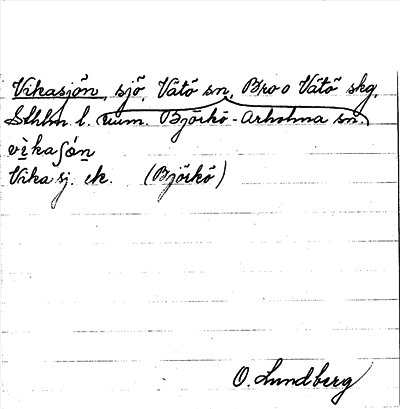 Vikasjön, sjö, Vätö sn, Bro o Vätö skg,
Sthlm l. num. Björkö-Arholma sn
vikaʃön
Vika sj. ek. (Björkö)
O. Lundberg